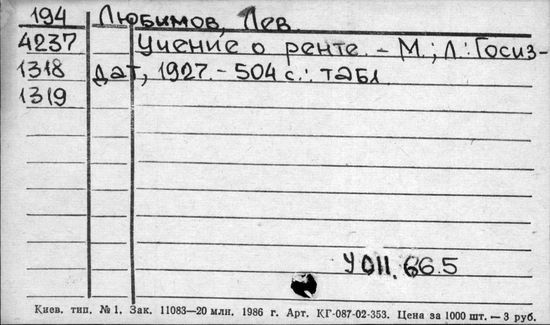 194 Любимов, Лев.
4237 Учение о ренте. - М.; Л.: Госиз-
1318 дат, 1927. - 504 с.: табл.
1319
У 011.66.5
Киев. тип. № 1. Зак. 11083—20 млн. 1986 г. Арт. КГ-087-02-353. Цена за 1000 шт. — 3 руб.